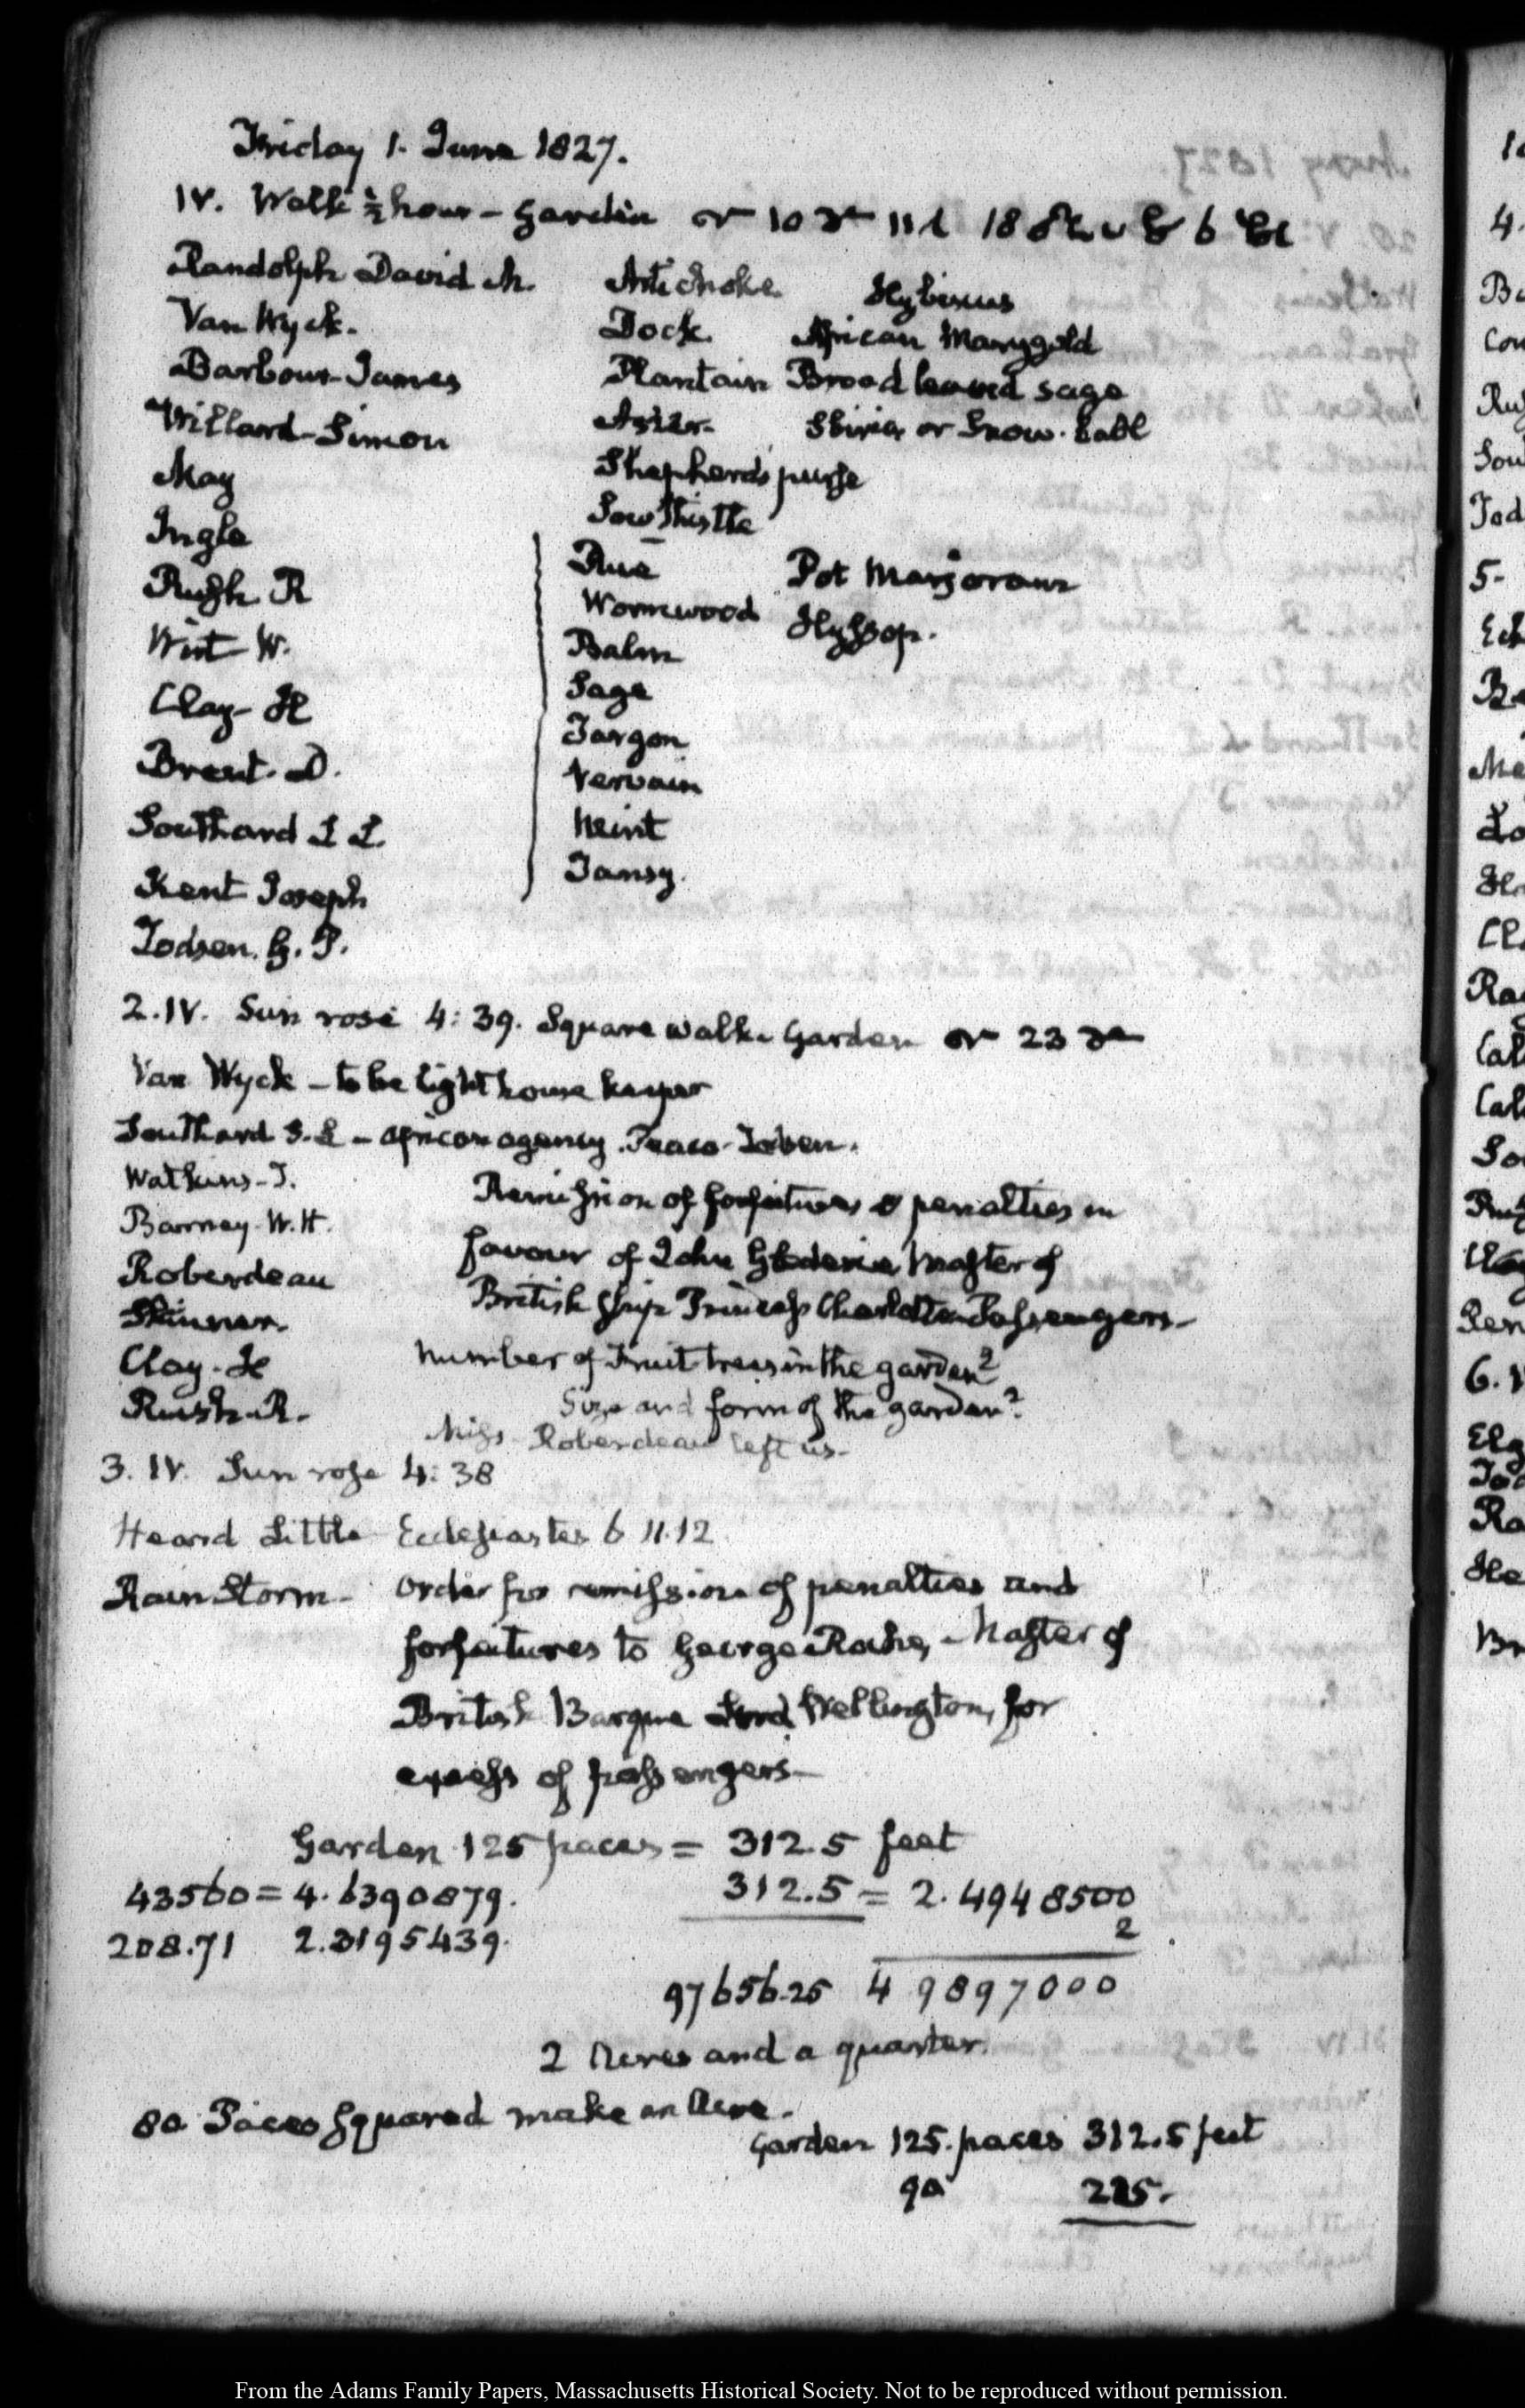 Friday 1. June 1827.
IV. Walk ½ hour – Garden
Randolph David M. Artichoke Hybiscus
Van Wyck. Dock. African Marygold
Barbour James Plantain Broad leaved sage
Willard Simon Aster. or Snow ball
May Shepherds purse
Ingle Sow Thistle
Rush R Rue Pot Marjoram
Wirt W. Wormwood Hyssop.
Clay H Balm
Brent. D. Sage
Southard S L. Targon
Kent Joseph Vervain
Todsen. G. P. Meint
Tansy.
2. IV. Sun rose 4:39. Square walk. Garden 23
Van Wyck – to be light house keeper
Southard S. L – African agency.
Watkins – T. Remission of forfeitures & penalties in
Barney W. H. favour of John Master of
Roberdeau British Ship Princess Charlotte Passengers –
Skinner. Number of Fruit trees in the garden?
Clay – H Size and form of the garden?
Rush – R. Miss Roberdeau left us –
3. IV. Sun rose 4:38
Heard Little Ecclesiastes 6 11.12
Rain Storm – Order for remission of penalties and
forfeitures to George Master of
British Barque Wellington, for
excess of passengers –
Garden 125 paces = 312.5 feet
43560 = 4.6390879. 312.5 = 2.4948500
208.71 2.3195439. 2
97656.25 4 9897000
2 Acres and a quarter.
80 Paces Squared make an Acre.
Garden 125. paces 312.5 feet
90 225.
From the Adams Family Papers, Massachusetts Historical Society. Not to be reproduced without permission.